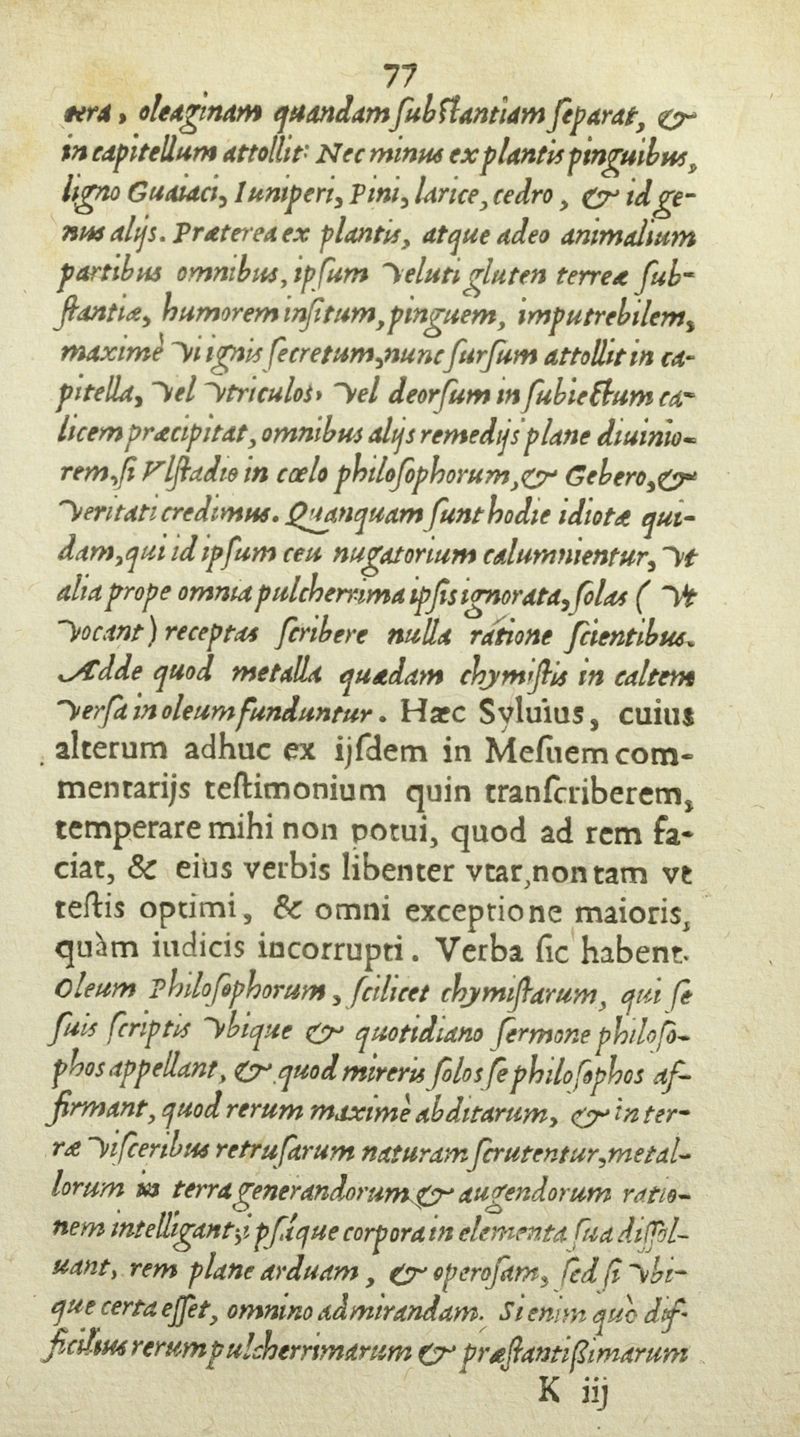 77
tera, oleaginam quandam ſubſtantiam ſeparat, &
in capitellum attollit: Nec minus ex plantis pinguibus,
ligno Guaiaci, Iuniperi, Pini, larice, cedro, & id ge-
nus alijs. Præterea ex plantis, atque adeo animalium
partibus omnibus, ipſum veluti gluten terreæ ſub-
ſtantiæ, humorem inſitum, pinguem, imputrebilem,
maximè vi ignis ſecretum, nunc ſurſum attollit in ca-
pitella, vel vtriculos, vel deorſum in ſubiectum ca-
licem præcipitat, omnibus alijs remedijs plane diuinio-
rem, ſi Vlſtadio in cœlo philoſophorum, & Gebero, &
veritati credimus. Quanquam ſunt hodie idiotæ qui-
dam, qui id ipſum ceu nugatorium calumnientur, vt
alia prope omnia pulcherrima ipſis ignorata, ſolas ( vt
vocant) receptas ſcribere nulla ratione ſcientibus.
Adde quod metalla quædam chymiſtis in calcem
verſa in oleum funduntur. Hæc Syluius, cuius
alterum adhuc ex ijſdem in Meſuem com-
mentarijs teſtimonium quin tranſcriberem,
temperare mihi non potui, quod ad rem fa-
ciat, & eius verbis libenter vtar, non tam vt
teſtis optimi, & omni exceptione maioris,
quàm iudicis incorrupti. Verba ſic habent.
Oleum Philoſophorum, ſcilicet chymiſtarum, qui ſe
ſuis ſcriptis vbique & quotidiano ſermone philoſo-
phos appellant, & quod mireris ſolos ſe philoſophos af-
firmant, quod rerum maximè abditarum, & in ter-
ræ viſceribus retruſarum naturam ſcrutentur, metal-
lorum in terra generandorum & augendorum ratio-
nem intelligant, ipſaque corpora in elementa ſua diſſol-
uant, rem plane arduam, & operoſam, ſed ſi vbi-
que certa eſſet, omnino admirandam. Si enim quo dif-
ficilius rerum pulcherrimarum & præſtantißimarum
K iij